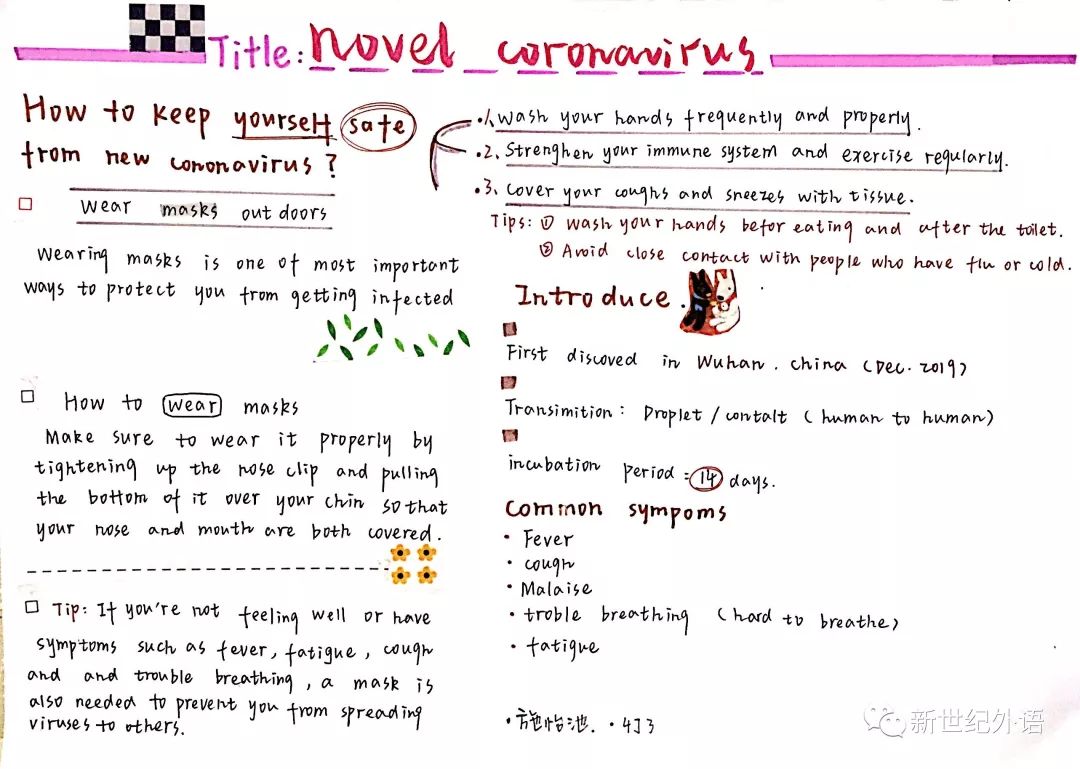 Title: novel coronavirus
How to keep yourself safe
from new cononavirus?
wear masks outdoors
wearing masks is one of most important
ways to protect you from getting infected
How to wear masks
Make sure to wear it properly by
tightening up the nose clip and pulling
the bottom of it over your chin so that
your nose and mouth are both covered.
Tip: If you're not feeling well or have
symptoms such as fever, fatigue, cough
and and trouble breathing, a mask is
also needed to prevent you from spreading
viruses to others.
1. wash your hands frequently and properly.
2. Strenghen your immune system and exercise regularly.
3. cover your coughs and sneezes with tissue.
Tips: ① wash your hands befor eating and after the toilet.
② Avoid close contact with people who have flu or cold.
Introduce.
First discoved in Wuhan. china (Dec. 2019)
Transimition: Droplet / contalt (human to human)
incubation period: 14 days.
common sympoms
• Fever
• cough
• Malaise
• troble breathing (hard to breathe)
• fatigue
• 施怡池. • 4J3
新世纪外语